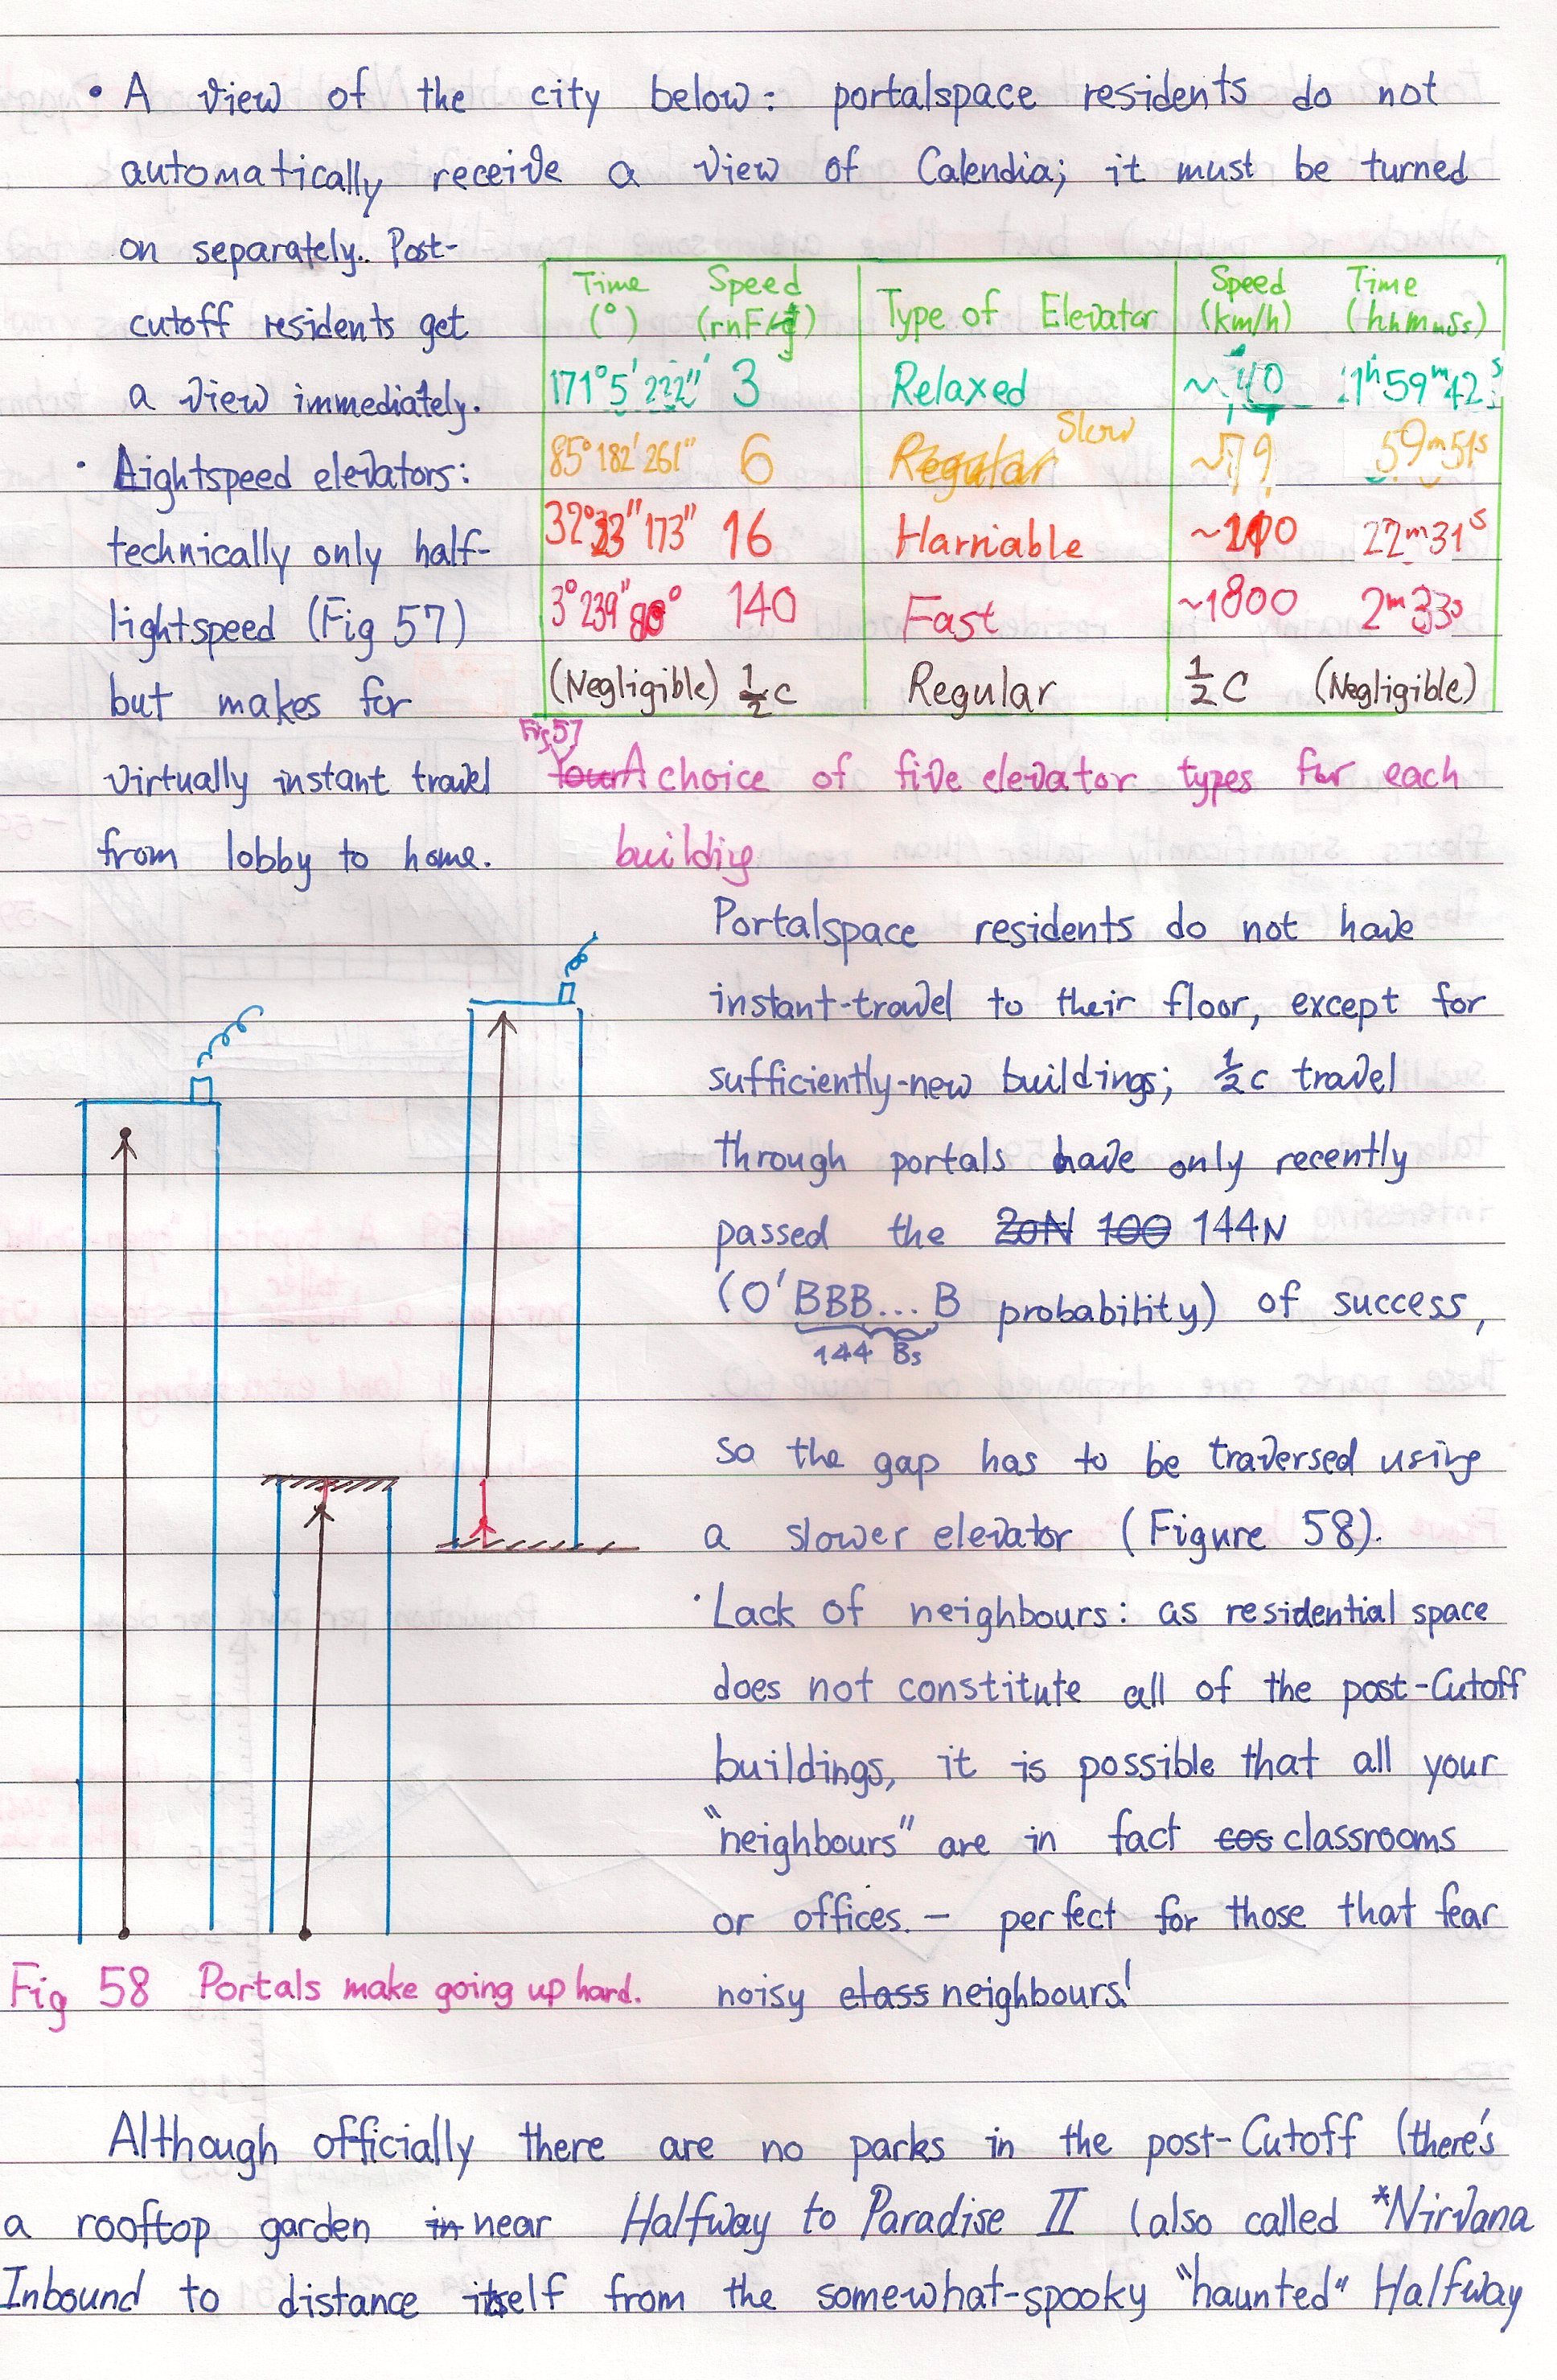 • A view of the city below: portalspace residents do not
automatically receive a view of Calendia; it must be turned
on separately. Post-
cutoff residents get
a view immediately.
• Lightspeed elevators:
technically only half-
lightspeed (Fig 57)
but makes for
virtually instant travel
from lobby to home.
Time (°) Speed (rnF/ ) Type of Elevator Speed (km/h) Time (hhmmss)
171°5'222" 3 Relaxed ~40 1h59m42s
85°182'261" 6 Regular Slow ~79 59m51s
32° 173" 16 Harniable ~ 22m31s
3°239" 140 Fast ~1800 2m33s
(Negligible) ½c Regular ½c (Negligible)
Fig 57
Your A choice of five elevator types for each
building
Portalspace residents do not have
instant-travel to their floor, except for
sufficiently-new buildings; ½c travel
through portals have only recently
passed the 20N 100 144N
(0'BBB...B probability) of success,
144 Bs
so the gap has to be traversed using
a slower elevator (Figure 58).
• Lack of neighbours: as residential space
does not constitute all of the post-Cutoff
buildings, it is possible that all your
"neighbours" are in fact cos classrooms
or offices. – perfect for those that fear
noisy class neighbours!
Fig 58 Portals make going up hard.
Although officially there are no parks in the post-Cutoff (there's
a rooftop garden in near Halfway to Paradise II (also called *Nirvana
Inbound to distance itself from the somewhat-spooky "haunted" Halfway